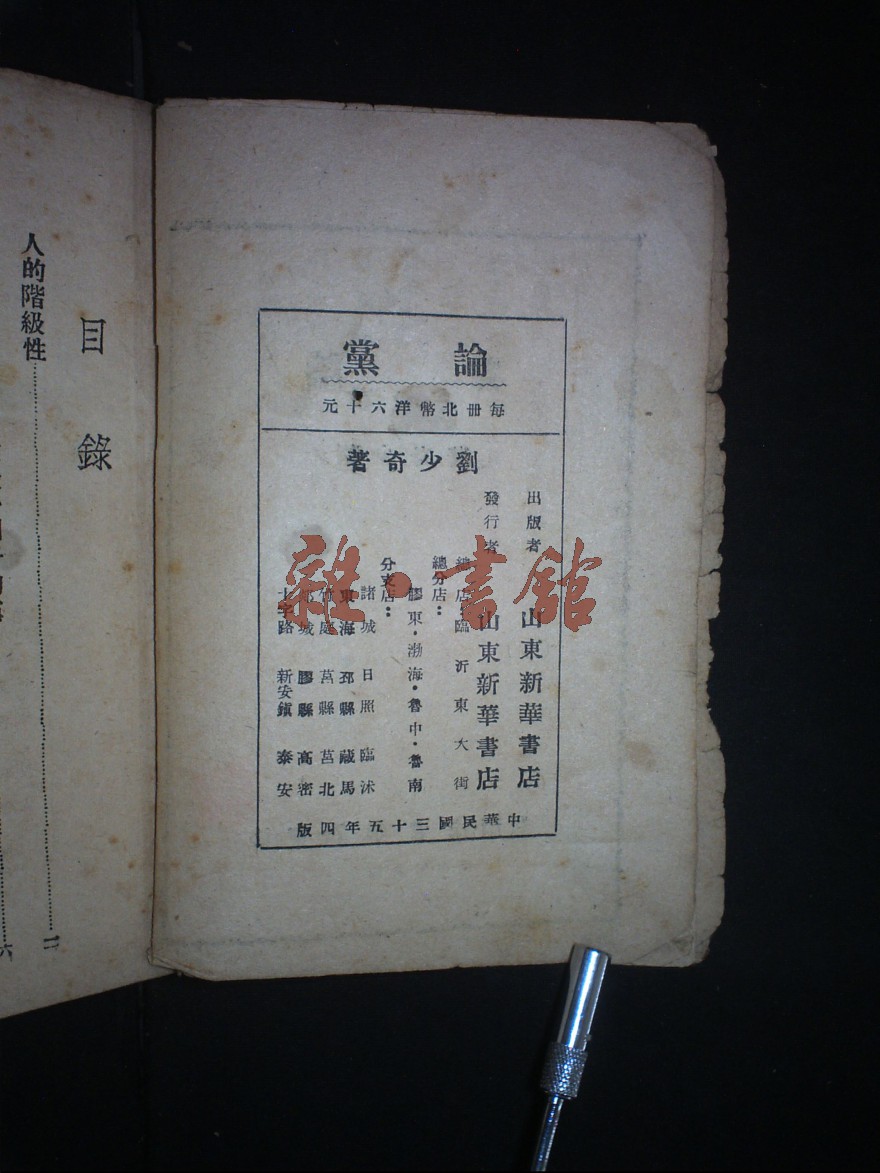 論黨
每冊北幣洋六十元
劉少奇著
出版者 山東新華書店
發行者 山東新華書店
總店:臨沂東大街
總分店:
膠東·渤海·魯中·魯南
分支店:
諸城 日照 臨沭
東海 邳縣 藏馬
竹庭 莒縣 莒北
郯城 膠縣 高密
十字路 新安鎮 泰安
中華民國三十五年四版
雜·書館
目錄
人的階級性……………一
六